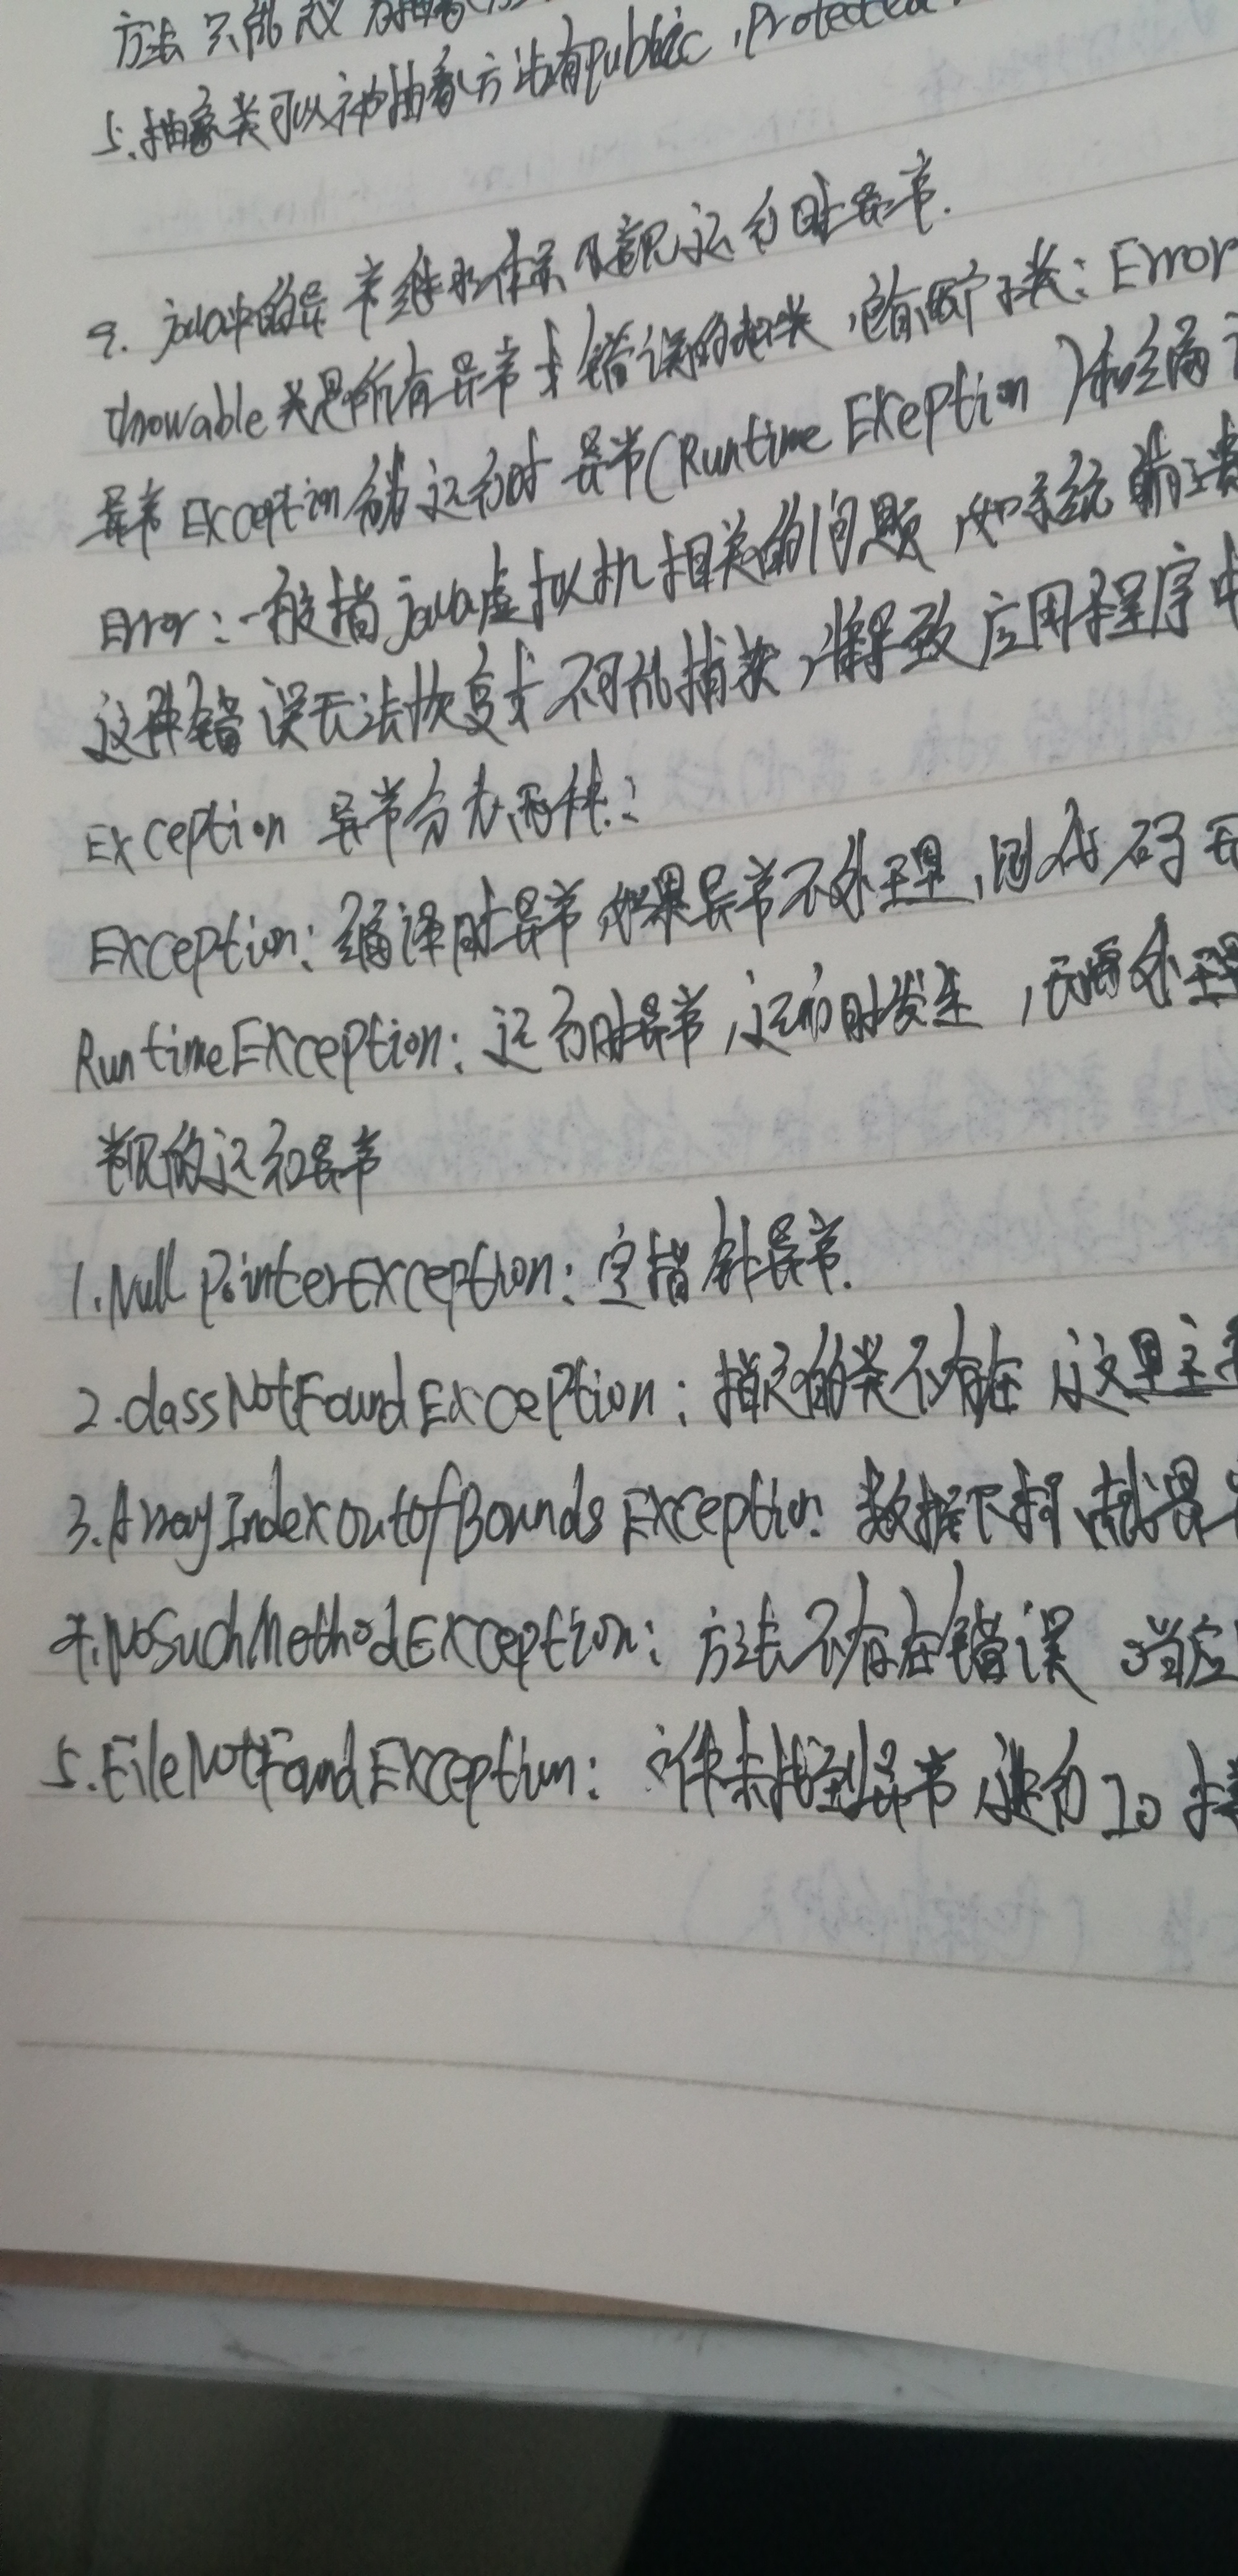 方法只能
5.抽象类可以 抽象方法有public,Protected
9. java中的异常继承体系及常见运行时异常.
throwable类是所有异常 错误的 类,它有两个子类:Error
异常Exception 运行时异常(Runtime EXeption)和编
Error:一般指java虚拟机相关的问题,如系统崩
这种错误无法恢复或不可能捕获,将导致应用程序中
Exception 异常分为两种:
EXception:编译时异常,如果异常不处理,则代码无
RuntimeEXception:运行时异常,运行时发生,无需处理
常见的运行异常
1.Null PointerException:空指针异常.
2.classNotFoundException:指定的类不存在 这里主
3.ArrayIndexoutofBounds EXception: 数据下标越界
4.NoSuchMethodEXception:方法不存在错误 当应
5.FileNotFoundEXception:文件未找到异常 进行Io